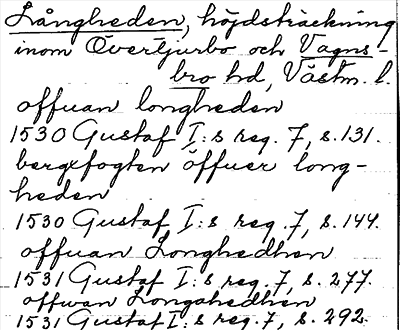 Långheden, höjdsträckning
inom Övertjurbo och Vagns-
bro hd, Västm. l.
offuan longheden
1530 Gustaf I:s reg. 7, s. 131.
bergxfogten öffuer long-
heden
1530 Gustaf I:s reg. 7, s. 144.
offuan Longhedhen
1531 Gustaf I:s reg. 7, s. 277.
offwan Longahedhen
1531 Gustaf I:s reg. 7, s. 292.